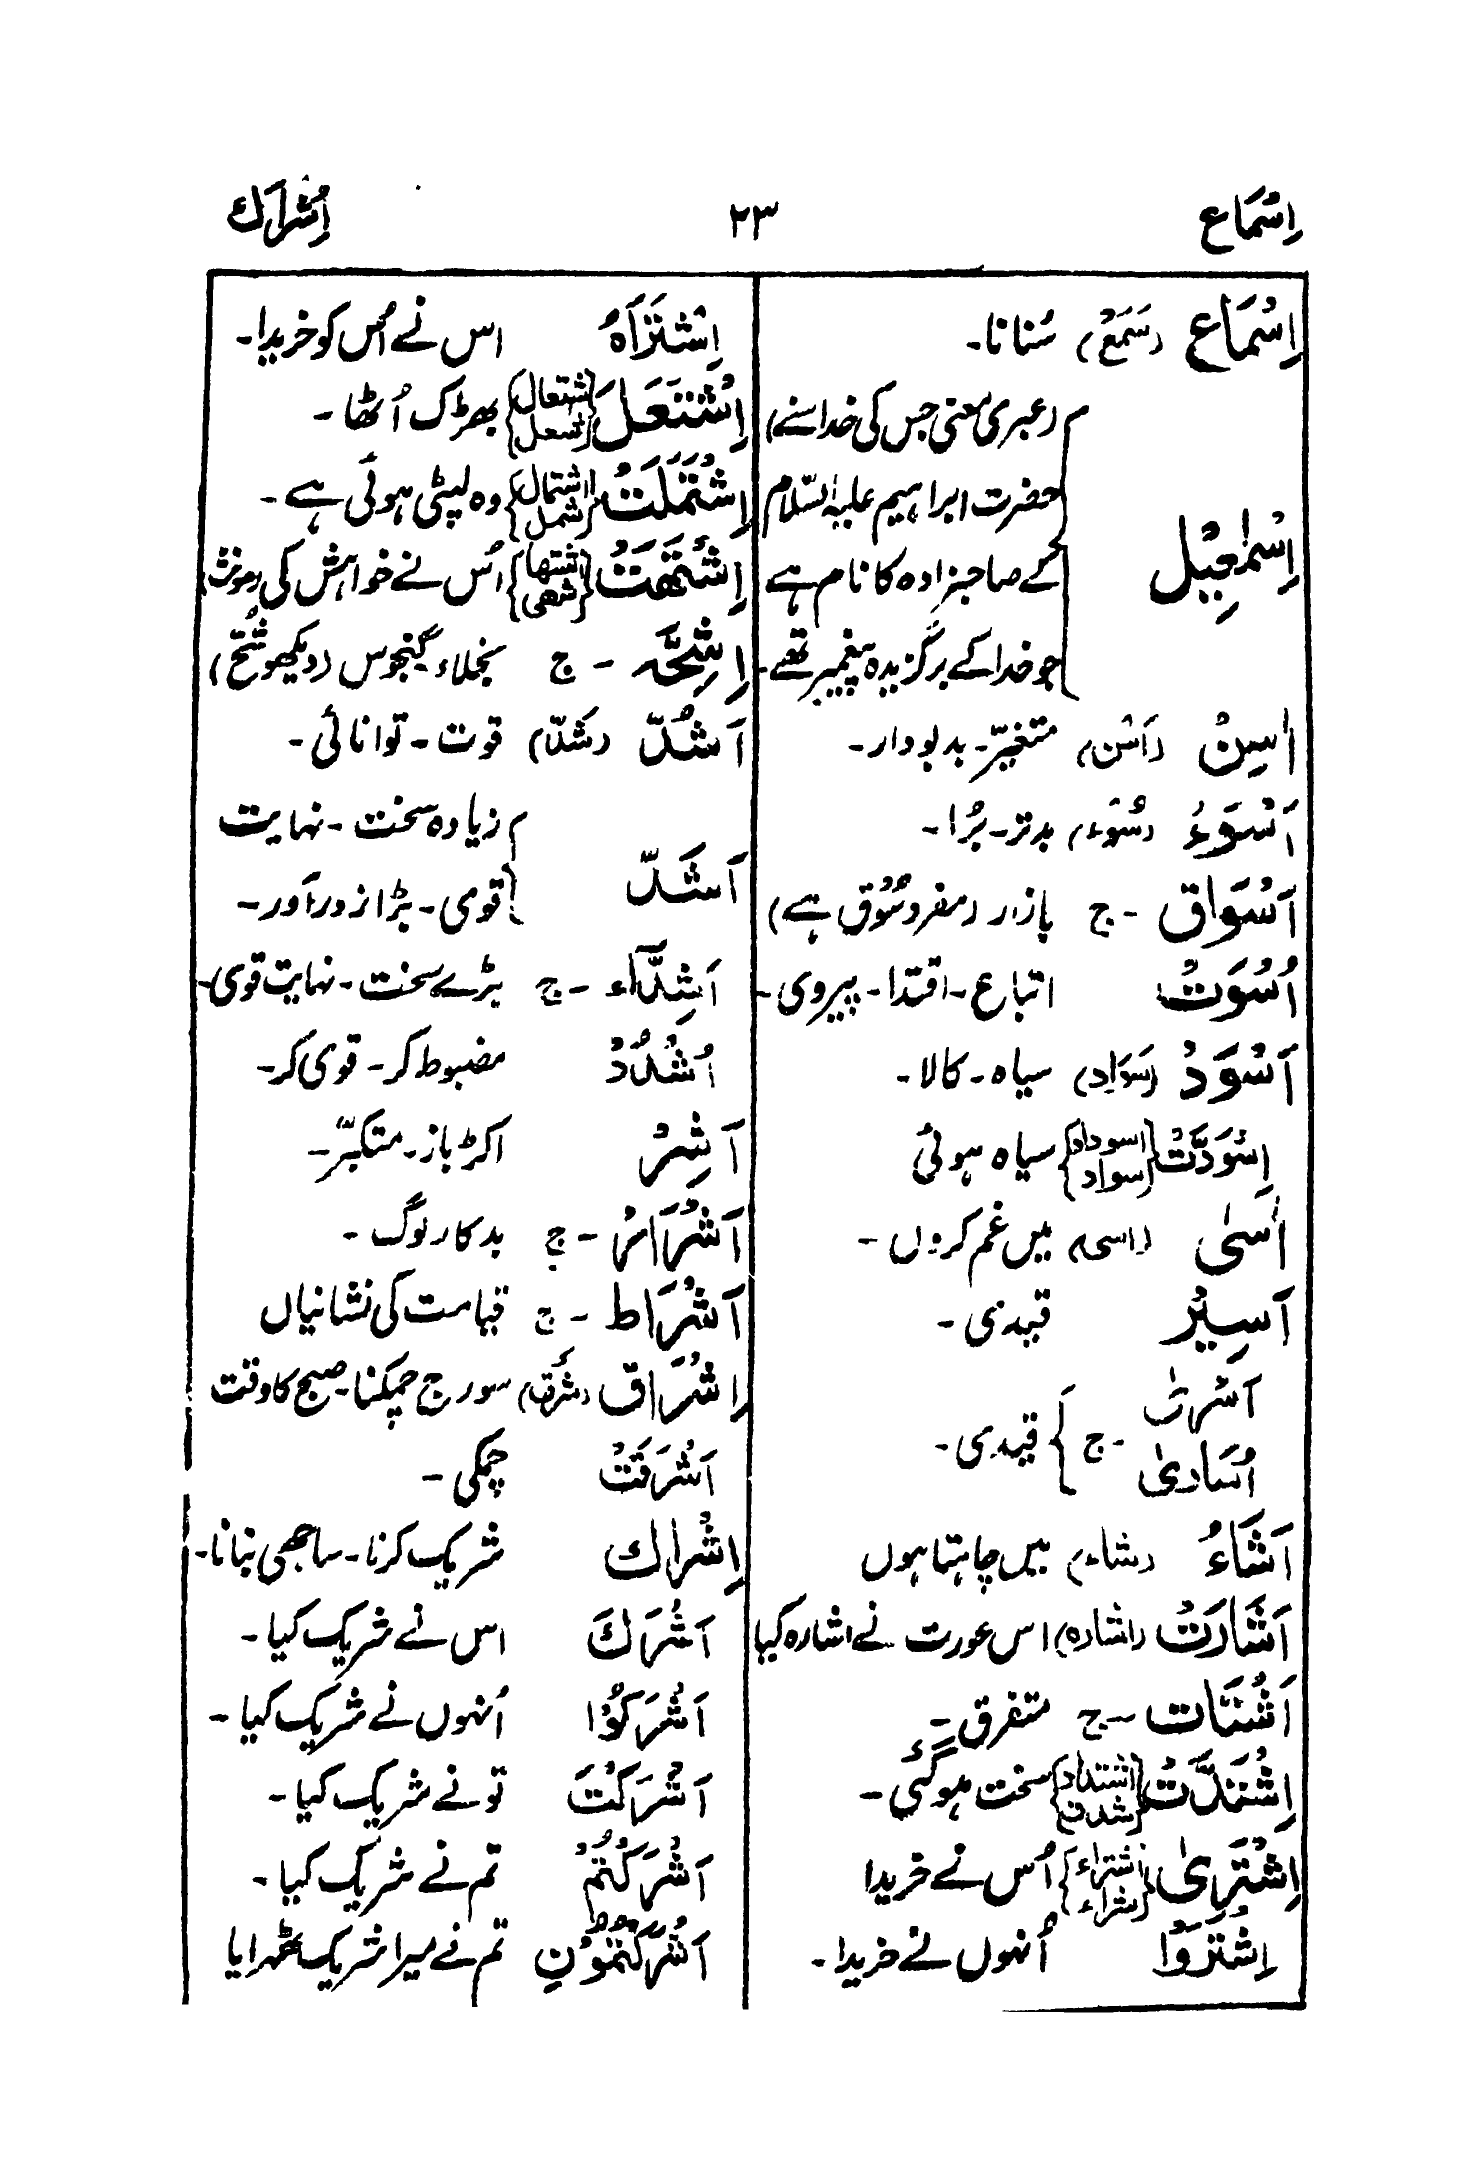 اِسْمَاع ۲۳ اِشْرَاك
اِسْمَاع (سَمَعْ) سُنانا۔
(عبری معنی جس کی خدا سنے)
حضرت ابراہیم علیہ السّلام
اِسْمٰعِيْل
کے صاحبزادہ کا نام ہے
جو خدا کے برگزیدہ پیغمبر تھے۔
اٰسِنْ (اَسْن) متغیّر۔ بدبودار۔
اَسْوَءُ (سُوْء) بدتر۔ بُرا۔
اَسْوَاق - ج بازار (مفرد سُوْق ہے)
اُسْوَتْ اتباع۔ اقتدا۔ پیروی۔
اَسْوَدْ (سَوَاد) سیاہ۔ کالا۔
اِسْوَدَّتْ {اسوداد سواد} سیاہ ہوئی
اٰسٰى (اسی) میں غم کروں۔
اَسِيْر قیدی۔
اَسْرٰى
اُسَارىٰ - ج قیدی۔
اَشَاءُ (شاء) میں چاہتا ہوں
اَشَارَتْ (اشارہ) اس عورت نے اشارہ کیا
اَشْتَات - ج متفرق۔
اِشْتَدَّتْ {اشتداد شدت} سخت ہوگئی۔
اِشْتَرىٰ {اشتراء شراء} اُس نے خریدا
اِشْتَرَوْا اُنہوں نے خریدا۔
اِشْتَرَاهُ اس نے اُس کو خریدا۔
اِشْتَعَلَ {اشتعال شعل} بھڑک اُٹھا۔
اِشْتَمَلَتْ {اشتمال شمل} وہ لپٹی ہوئی ہے۔
اِشْتَهَتْ {اشتها شهى} اُس نے خواہش کی (مونث)
اِشِحَّه - ج بخلاء۔ کنجوس (دیکھو شُحّ)
اَشُدّ (شدّ) قوت۔ توانائی۔
زیادہ سخت۔ نہایت
اَشَدّ
قوی۔ بڑا زور آور۔
اَشِدَّاء - ج بڑے سخت۔ نہایت قوی۔
اُشْدُدْ مضبوط کر۔ قوی کر۔
اَشِرْ اکڑباز۔ متکبّر۔
اَشْرَارْ - ج بدکار لوگ۔
اَشْرَاط - ج قیامت کی نشانیاں
اِشْرَاق (شرق) سورج چمکنا۔ صبح کا وقت
اَشْرَقَتْ چمکی۔
اِشْرَاك شریک کرنا۔ ساجھی بنانا۔
اَشْرَكَ اس نے شریک کیا۔
اَشْرَكُوْا اُنہوں نے شریک کیا۔
اَشْرَكْتَ تو نے شریک کیا۔
اَشْرَكْتُمْ تم نے شریک کیا۔
اَشْرَكْتُمُوْنِ تم نے میرا شریک ٹھہرایا